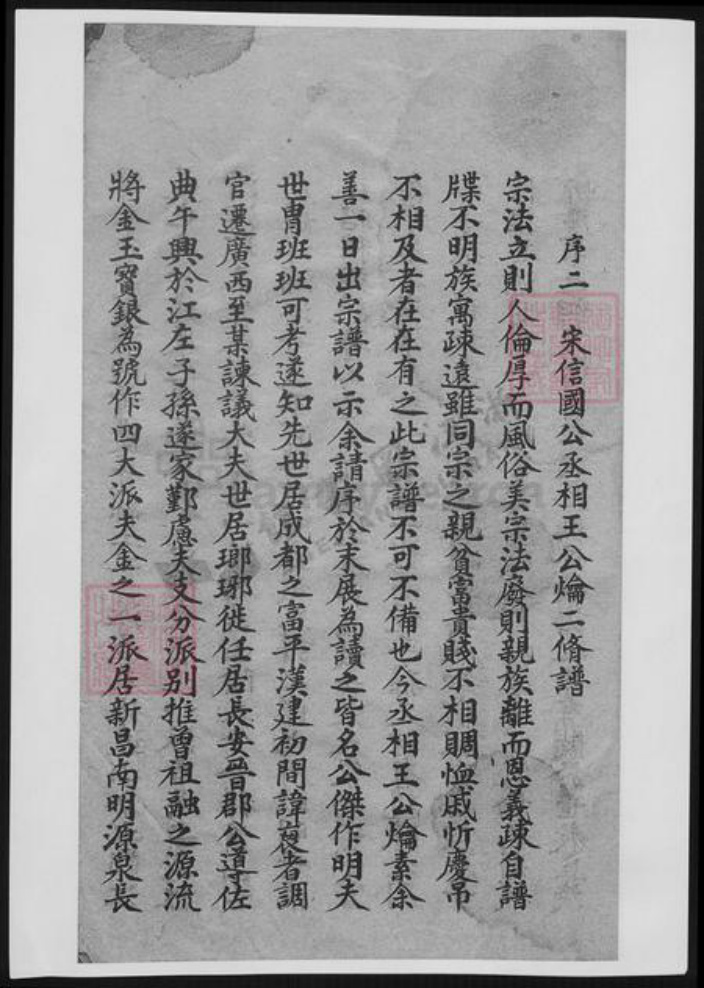 序二　宋信國公丞相王公爚二脩譜
宗法立則人倫厚而風俗美宗法廢則親族離而恩義疎自譜
牒不明族寓疎遠雖同宗之親貧富貴賤不相賙恤戚忻慶吊
不相及者在在有之此宗譜不可不備也今丞相王公爚素余
善一日出宗譜以示余請序於末展為讀之皆名公傑作明夫
世胄班班可考遂知先世居成都之富平漢建初間諱裒者調
官遷廣西至某諫議大夫世居瑯琊徙任居長安晉郡公導佐
典午興於江左子孫遂家鄞慮夫支分派別推曾祖融之源流
將金玉寶銀為號作四大派夫金之一派居新昌南明源泉長